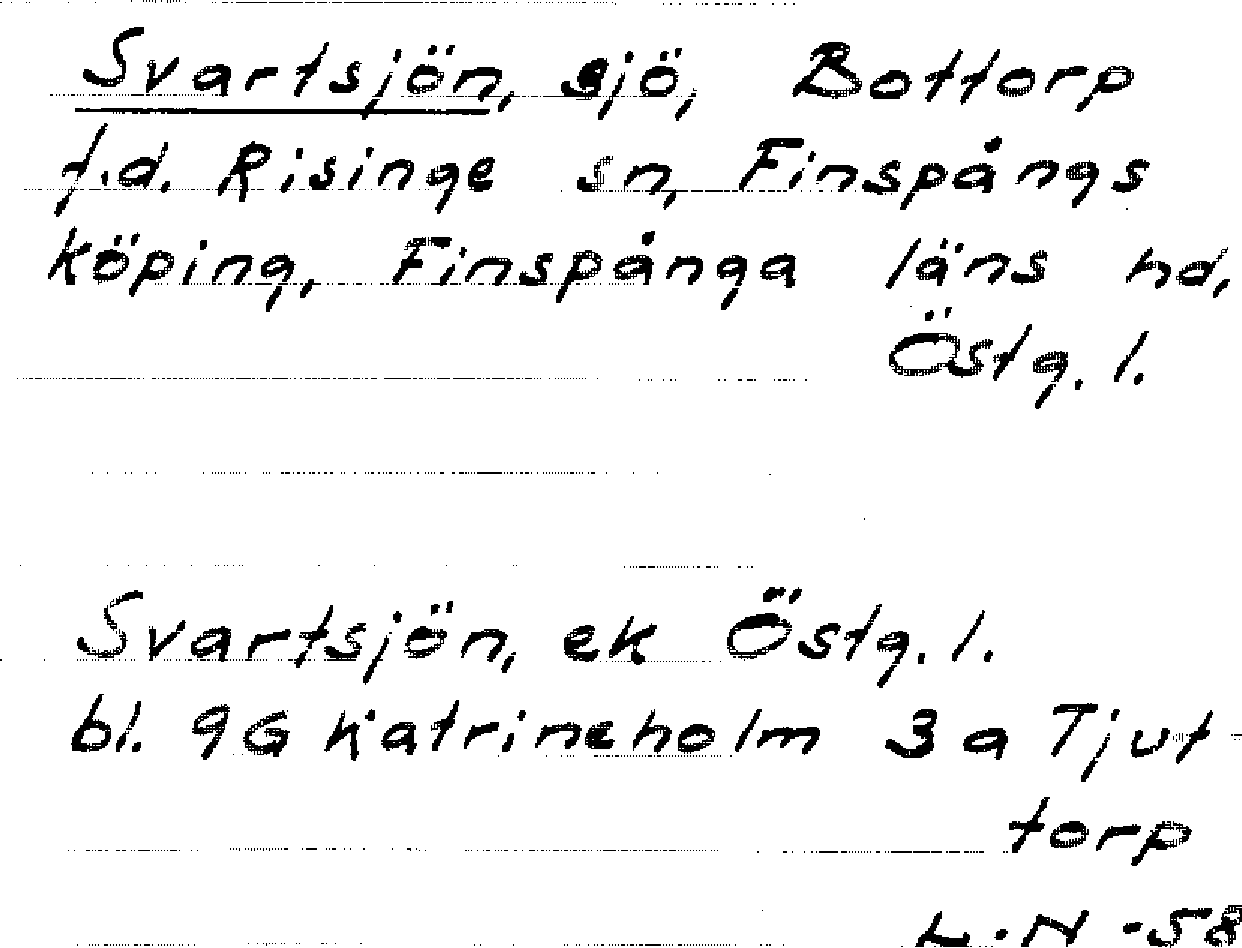 Svartsjön, sjö, Bottorp
f.d. Risinge sn, Finspångs
köping, Finspånga läns hd,
Östg. l.
Svartsjön, ek Östg. l.
bl. 9G Katrineholm 3a Tjut-
torp
-58